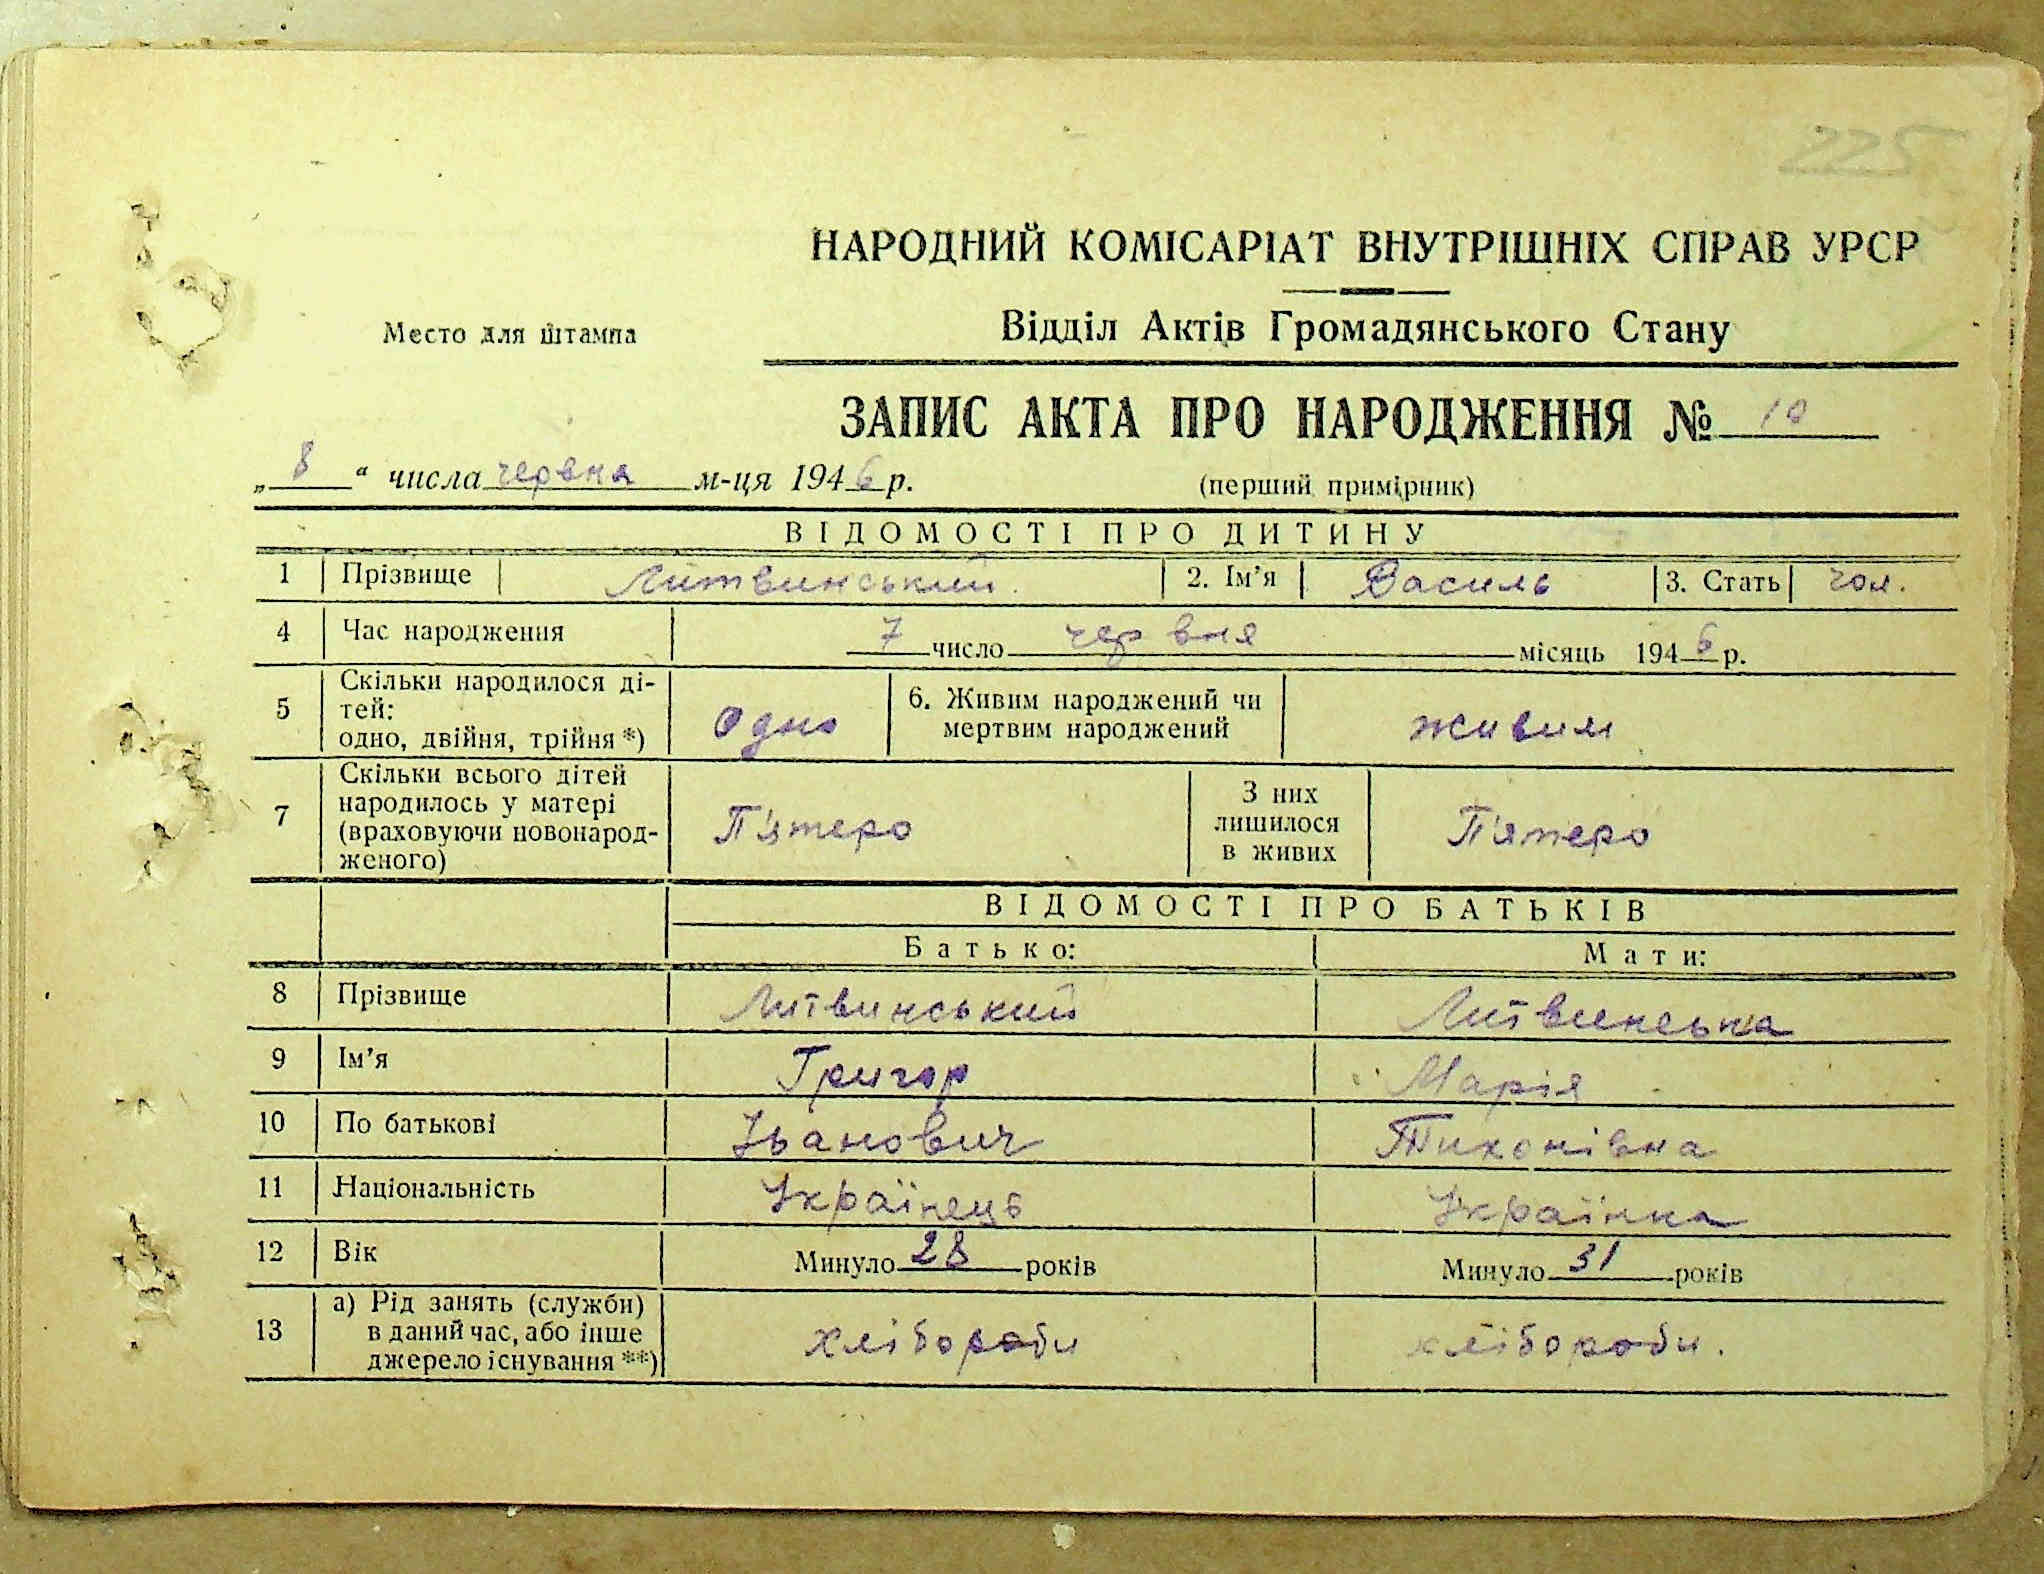 225
НАРОДНИЙ КОМІСАРІАТ ВНУТРІШНІХ СПРАВ УРСР
Место для штампа
Відділ Актів Громадянського Стану
ЗАПИС АКТА ПРО НАРОДЖЕННЯ № 10
„8“ числа червня м-ця 1946 р.
(перший примірник)
ВІДОМОСТІ ПРО ДИТИНУ
1 Прізвище Литвинський 2. Ім’я Василь 3. Стать чол.
4 Час народження 7 число червня місяць 1946 р.
5 Скільки народилося ді-
тей:
одно, двійня, трійня *) Одно 6. Живим народжений чи
мертвим народжений живим
7 Скільки всього дітей
народилось у матері
(враховуючи новонарод-
женого) П'ятеро З них
лишилося
в живих П'ятеро
ВІДОМОСТІ ПРО БАТЬКІВ
Батько: Мати:
8 Прізвище Литвинський Литвинська
9 Ім’я Григор Марія
10 По батькові Іванович Тихонівна
11 Національність Українець Українка
12 Вік Минуло 28 років Минуло 31 років
13 а) Рід занять (служби)
в даний час, або інше
джерело існування **) хлібороби хлібороби.